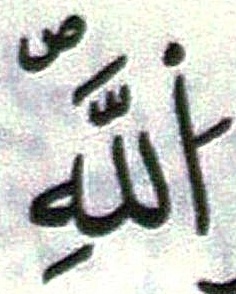 ٱللَّهِ ص